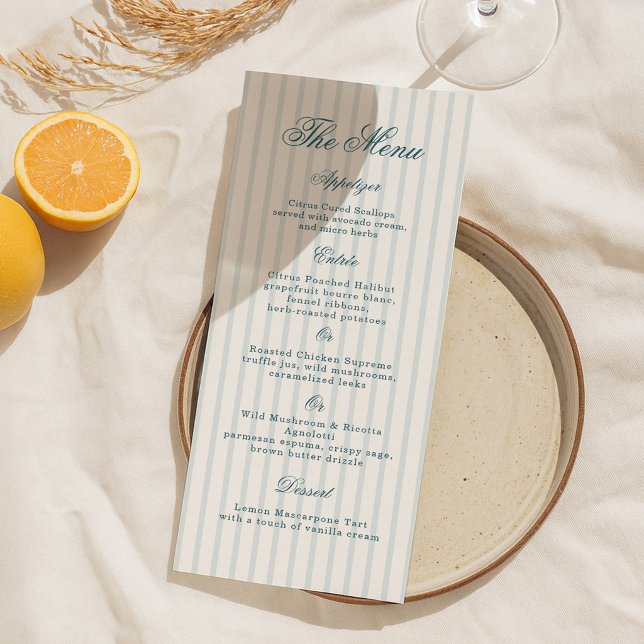 The Menu
Appetizer
Citrus Cured Scallops
served with avocado cream,
and micro herbs
Entrée
Citrus Poached Halibut
grapefruit beurre blanc,
fennel ribbons,
herb-roasted potatoes
Or
Roasted Chicken Supreme
truffle jus, wild mushrooms,
caramelized leeks
Or
Wild Mushroom & Ricotta
Agnolotti
parmesan espuma, crispy sage,
brown butter drizzle
Dessert
Lemon Mascarpone Tart
with a touch of vanilla cream